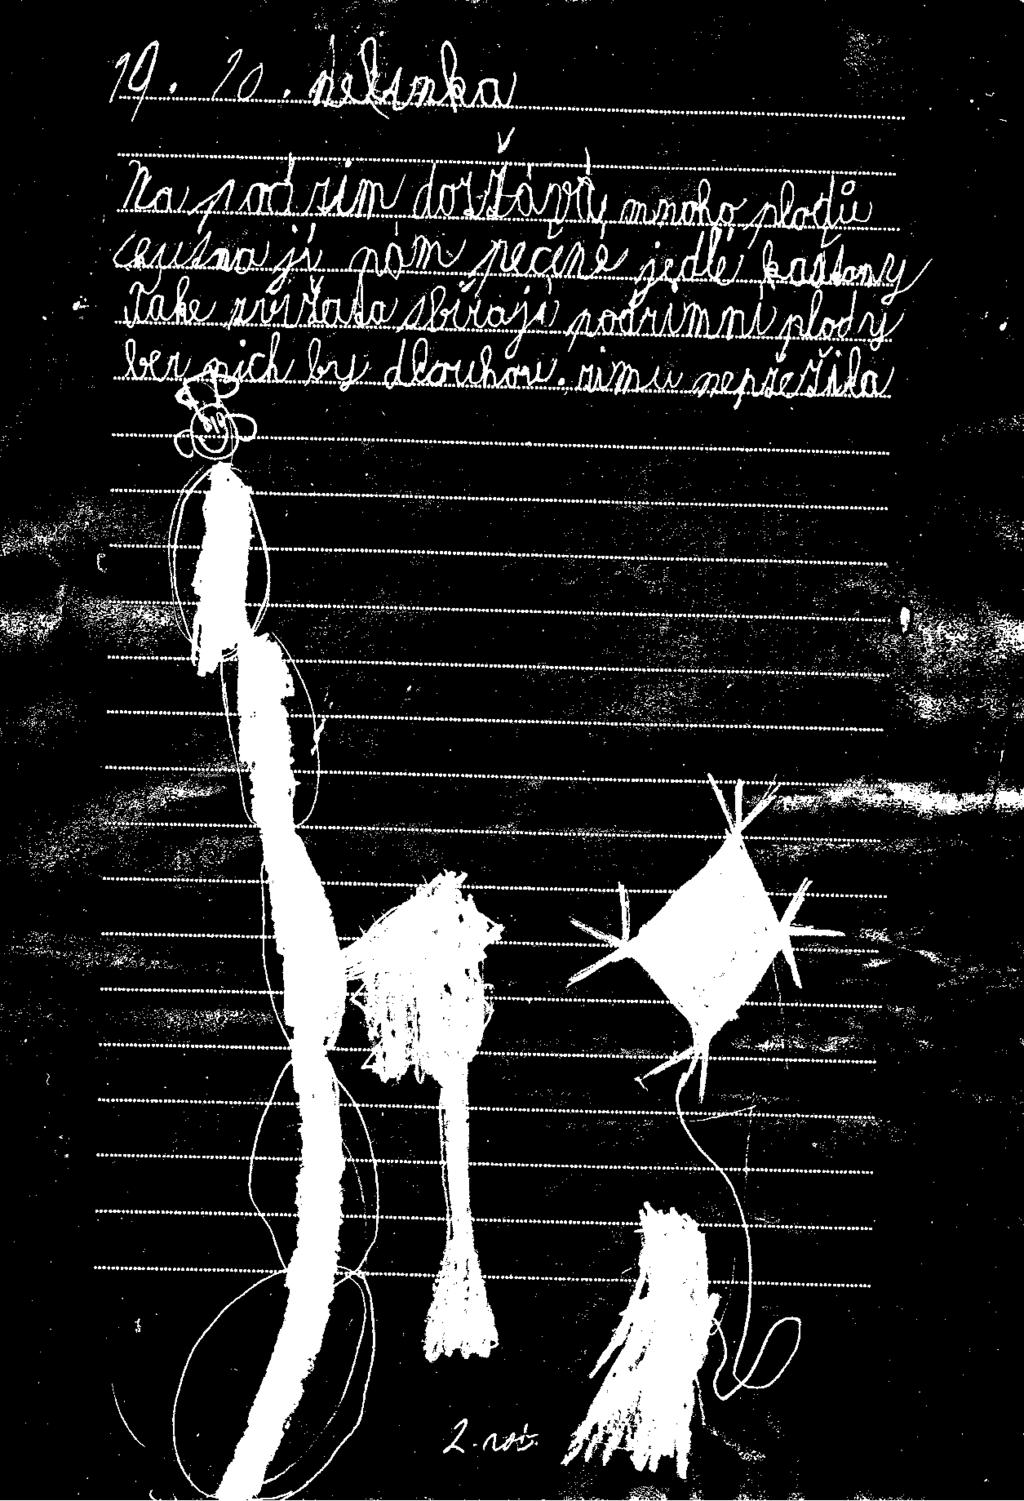 19. 10. nelinka
Na podzim dozrává mnoho plodů
chutnají nám pečené jedlé kaštany
Také zvířata sbírají podzimní plody
bez nich by dlouhou zimu nepřežila
2. roč.